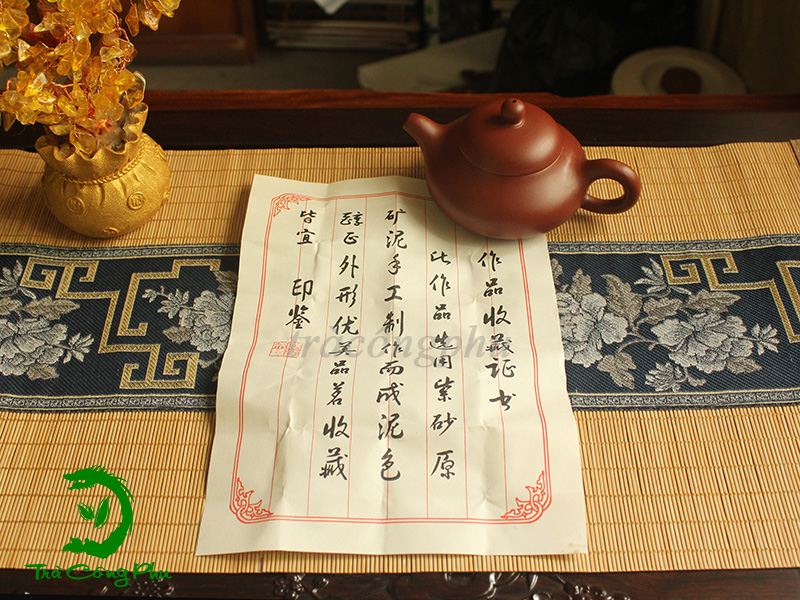 作品收藏证书
此作品选用紫砂原
矿泥手工制作而成泥色
醇正外形优美品茗收藏
皆宜 印鉴
tracôngphu
Trà Công Phu